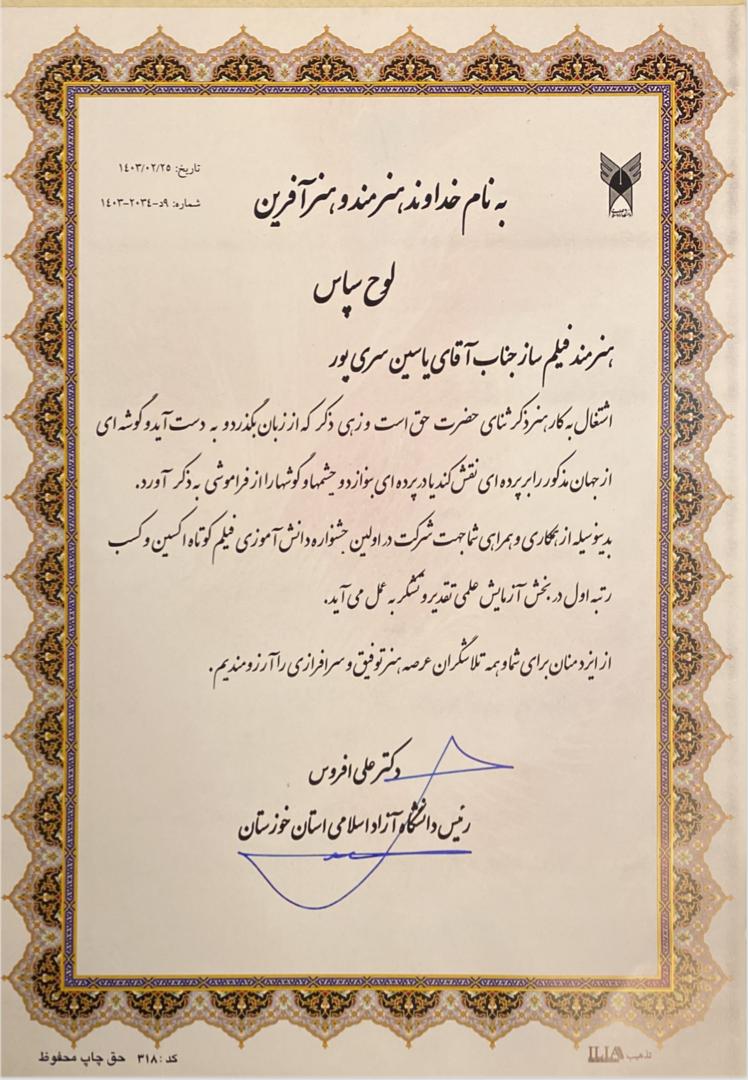 تاریخ: ۱۴۰۳/۰۲/۲۵
شماره: ۹د-۲۰۳۴-۱۴۰۳
به نام خداوند هنرمند و هنرآفرین
لوح سپاس
هنرمند فیلم ساز جناب آقای یاسین سری پور
اشتغال به کار هنر ذکر ثنای حضرت حق است و زهی ذکر که از زبان بگذرد و به دست آید و گوشه ای
از جهان مذکور را بر پرده ای نقش کند یا در پرده ای بنوازد و چشمها و گوشها را از فراموشی به ذکر آورد.
بدینوسیله از همکاری و همراهی شما جهت شرکت در اولین جشنواره دانش آموزی فیلم کوتاه اکسین و کسب
رتبه اول در بخش آزمایش علمی تقدیر و تشکر به عمل می آید.
از ایزد منان برای شما و همه تلاشگران عرصه هنر توفیق و سرافرازی را آرزومندیم.
دکتر علی افروس
رئیس دانشگاه آزاد اسلامی استان خوزستان
کد: ۳۱۸ حق چاپ محفوظ
تذهیب ILIA